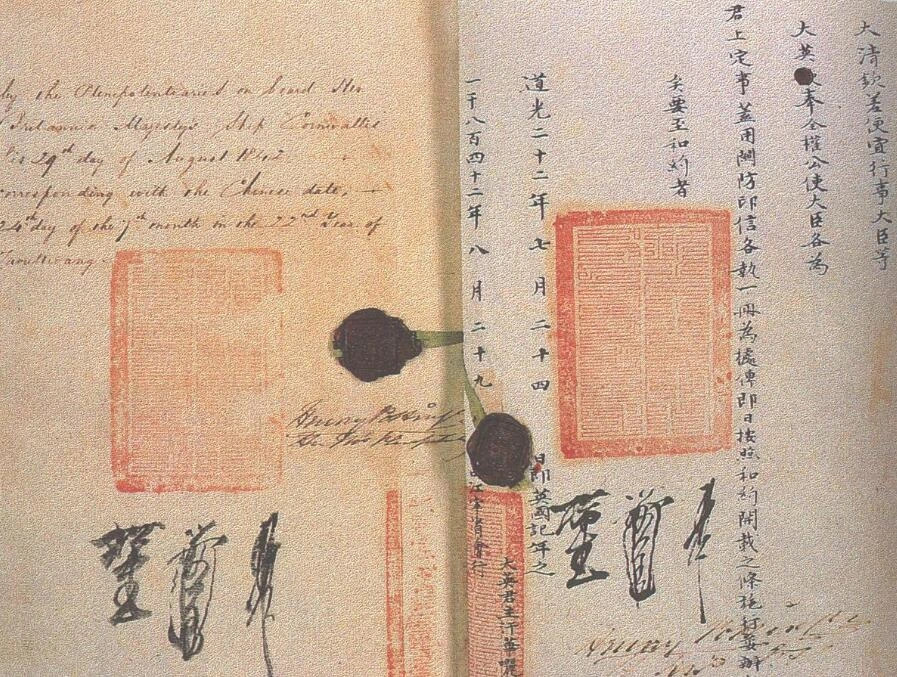 by the Plenipotentiaries on board Her
Britannic Majesty's Ship Cornwallis
this 29th day of August 1842
corresponding with the Chinese date,
24th day of the 7th month in the 22nd Year of
Taoukwang
Henry Pottinger
大清欽差便宜行事大臣等
大英 奉全權公使大臣各為
君上定事蓋用關防印信各執一冊為據俾即日按照和約開載之條施行妥辦
矣要至和約者
道光二十二年七月二十四日即英國記年之
一千八百四十二年八月二十九
江寧省會行
大英君主汗華麗
Henry Pottinger